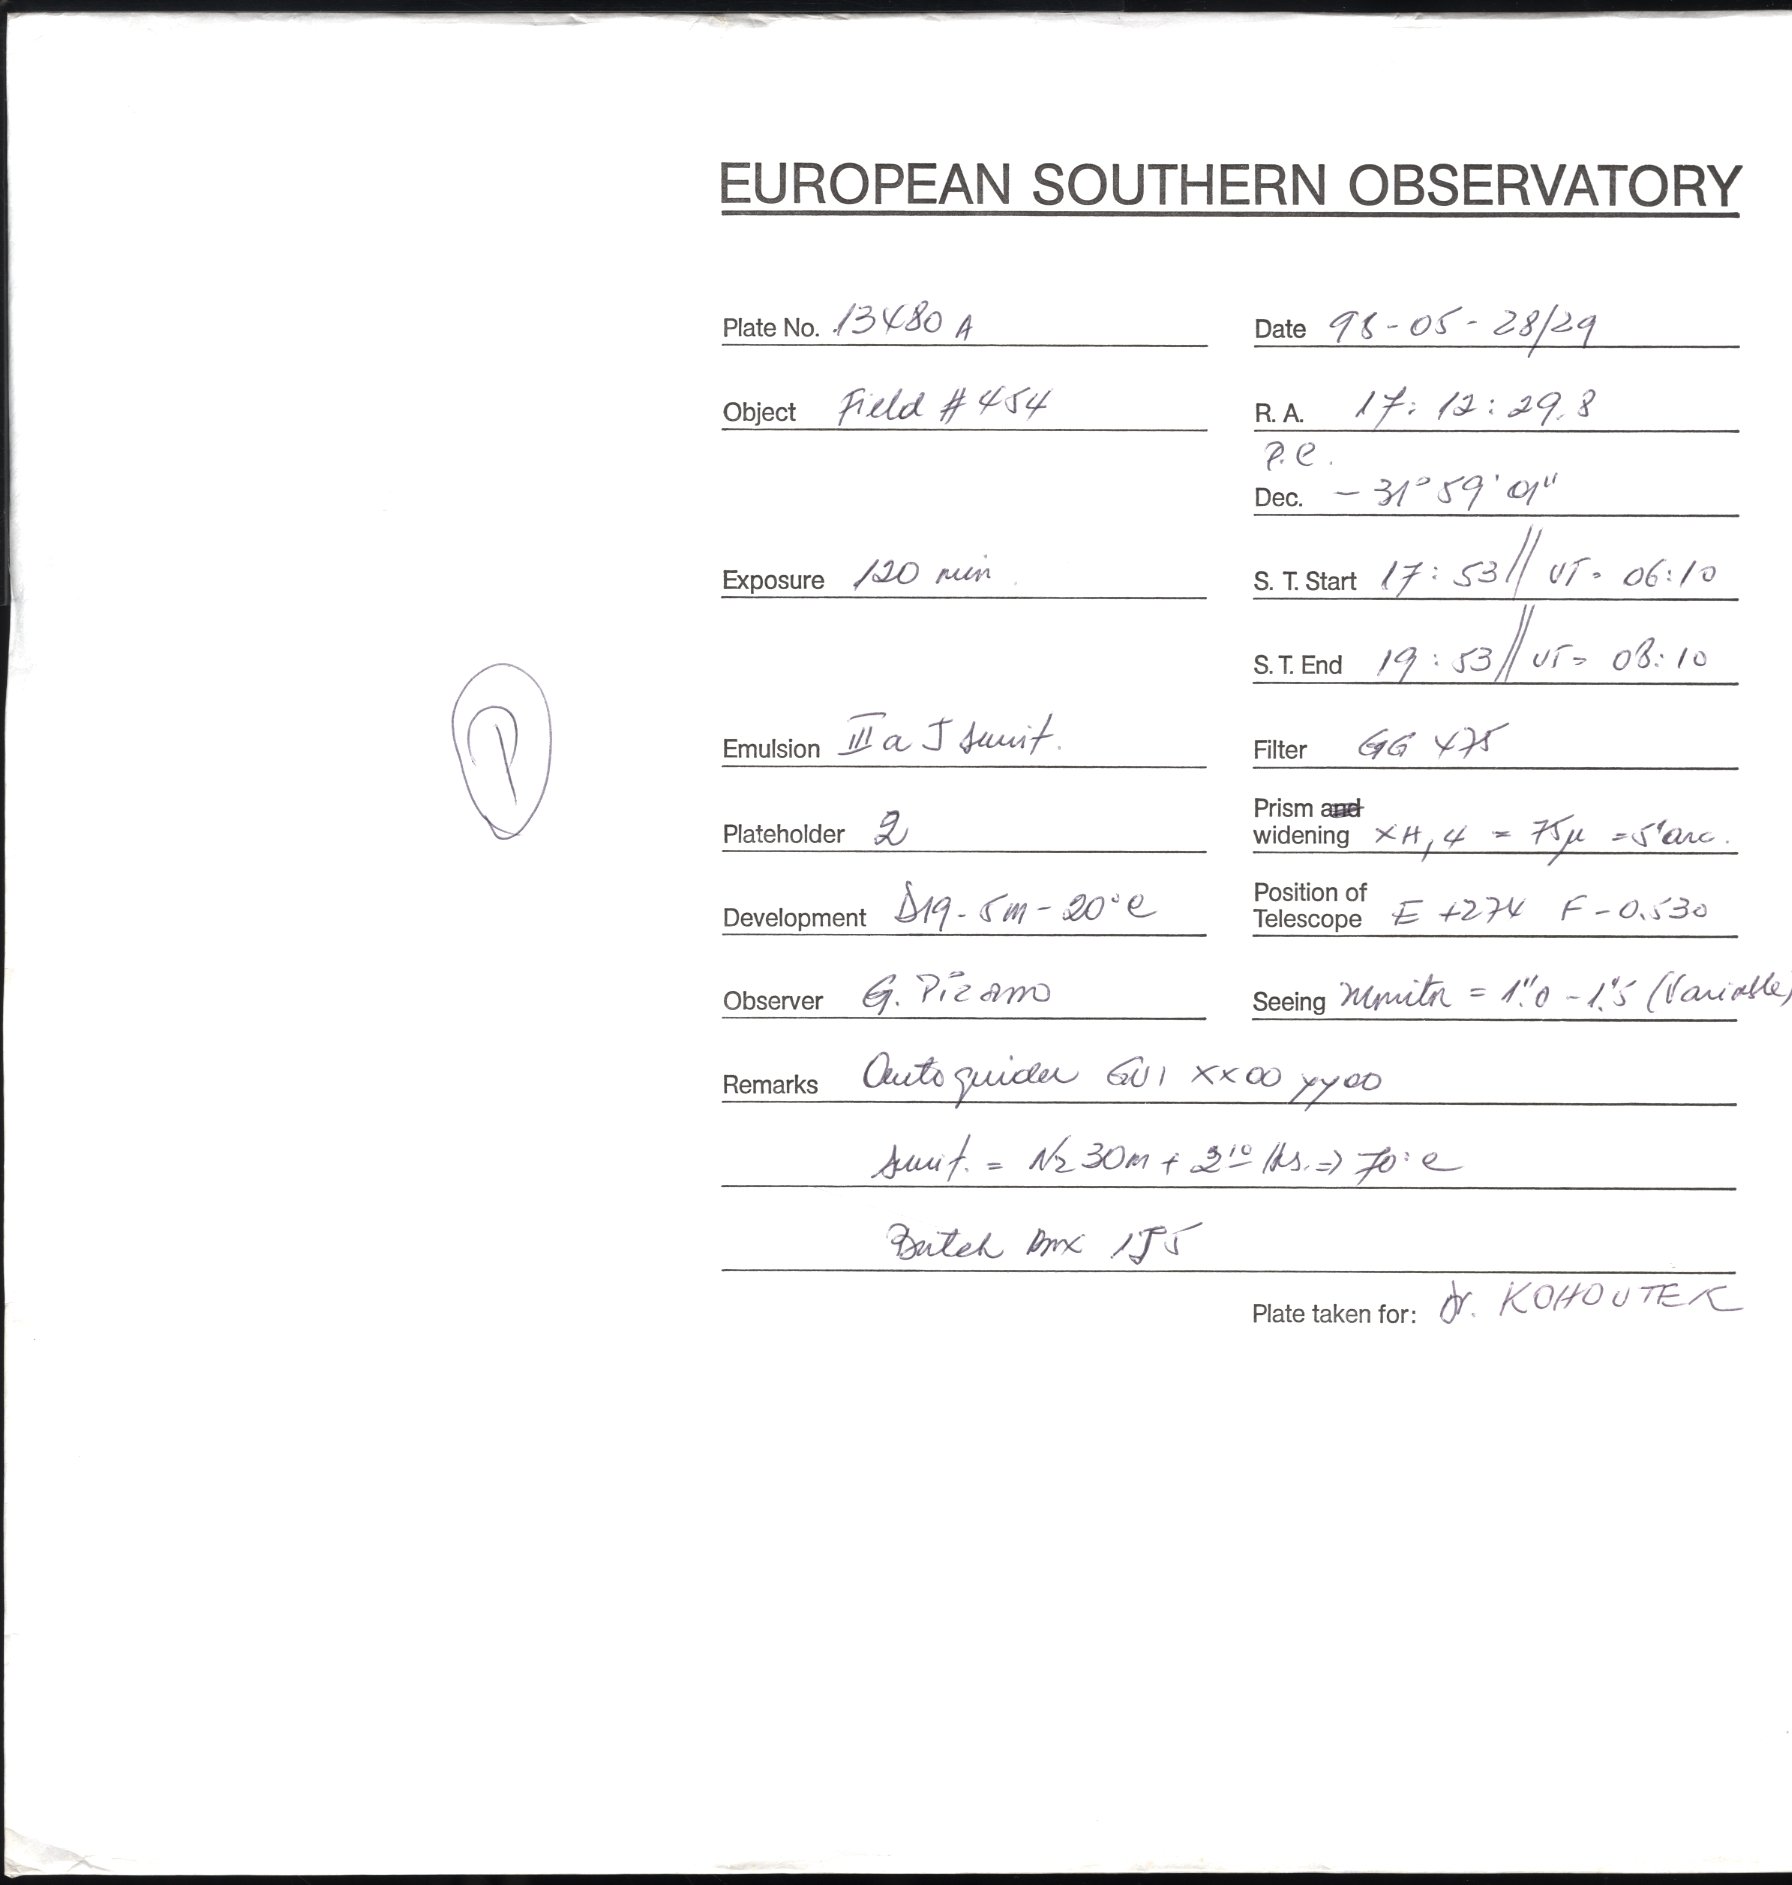 EUROPEAN SOUTHERN OBSERVATORY
Plate No. 13480 A Date 98-05-28/29
Object Field # 454 R. A. 17: 12: 29.8
P.C.
Dec. - 31° 59' 01"
Exposure 120 min. S. T. Start 17: 53 // UT= 06:10
S. T. End 19: 53 // UT= 08:10
Emulsion III a J sensit. Filter GG 475
Plateholder 2 Prism and widening XH, 4 = 75µ = 5" arc.
Development D19 - 5m - 20°C Position of Telescope E +274 F -0.530
Observer G. Pizarro Seeing Monitor = 1".0 - 1".5 (Variable)
Remarks Autoguider GV1 XX00 yy00
sensit. = N2 30m + 2 10 Hs. => 70°C
Batch Box 1J5
Plate taken for: Dr. KOHOUTEK